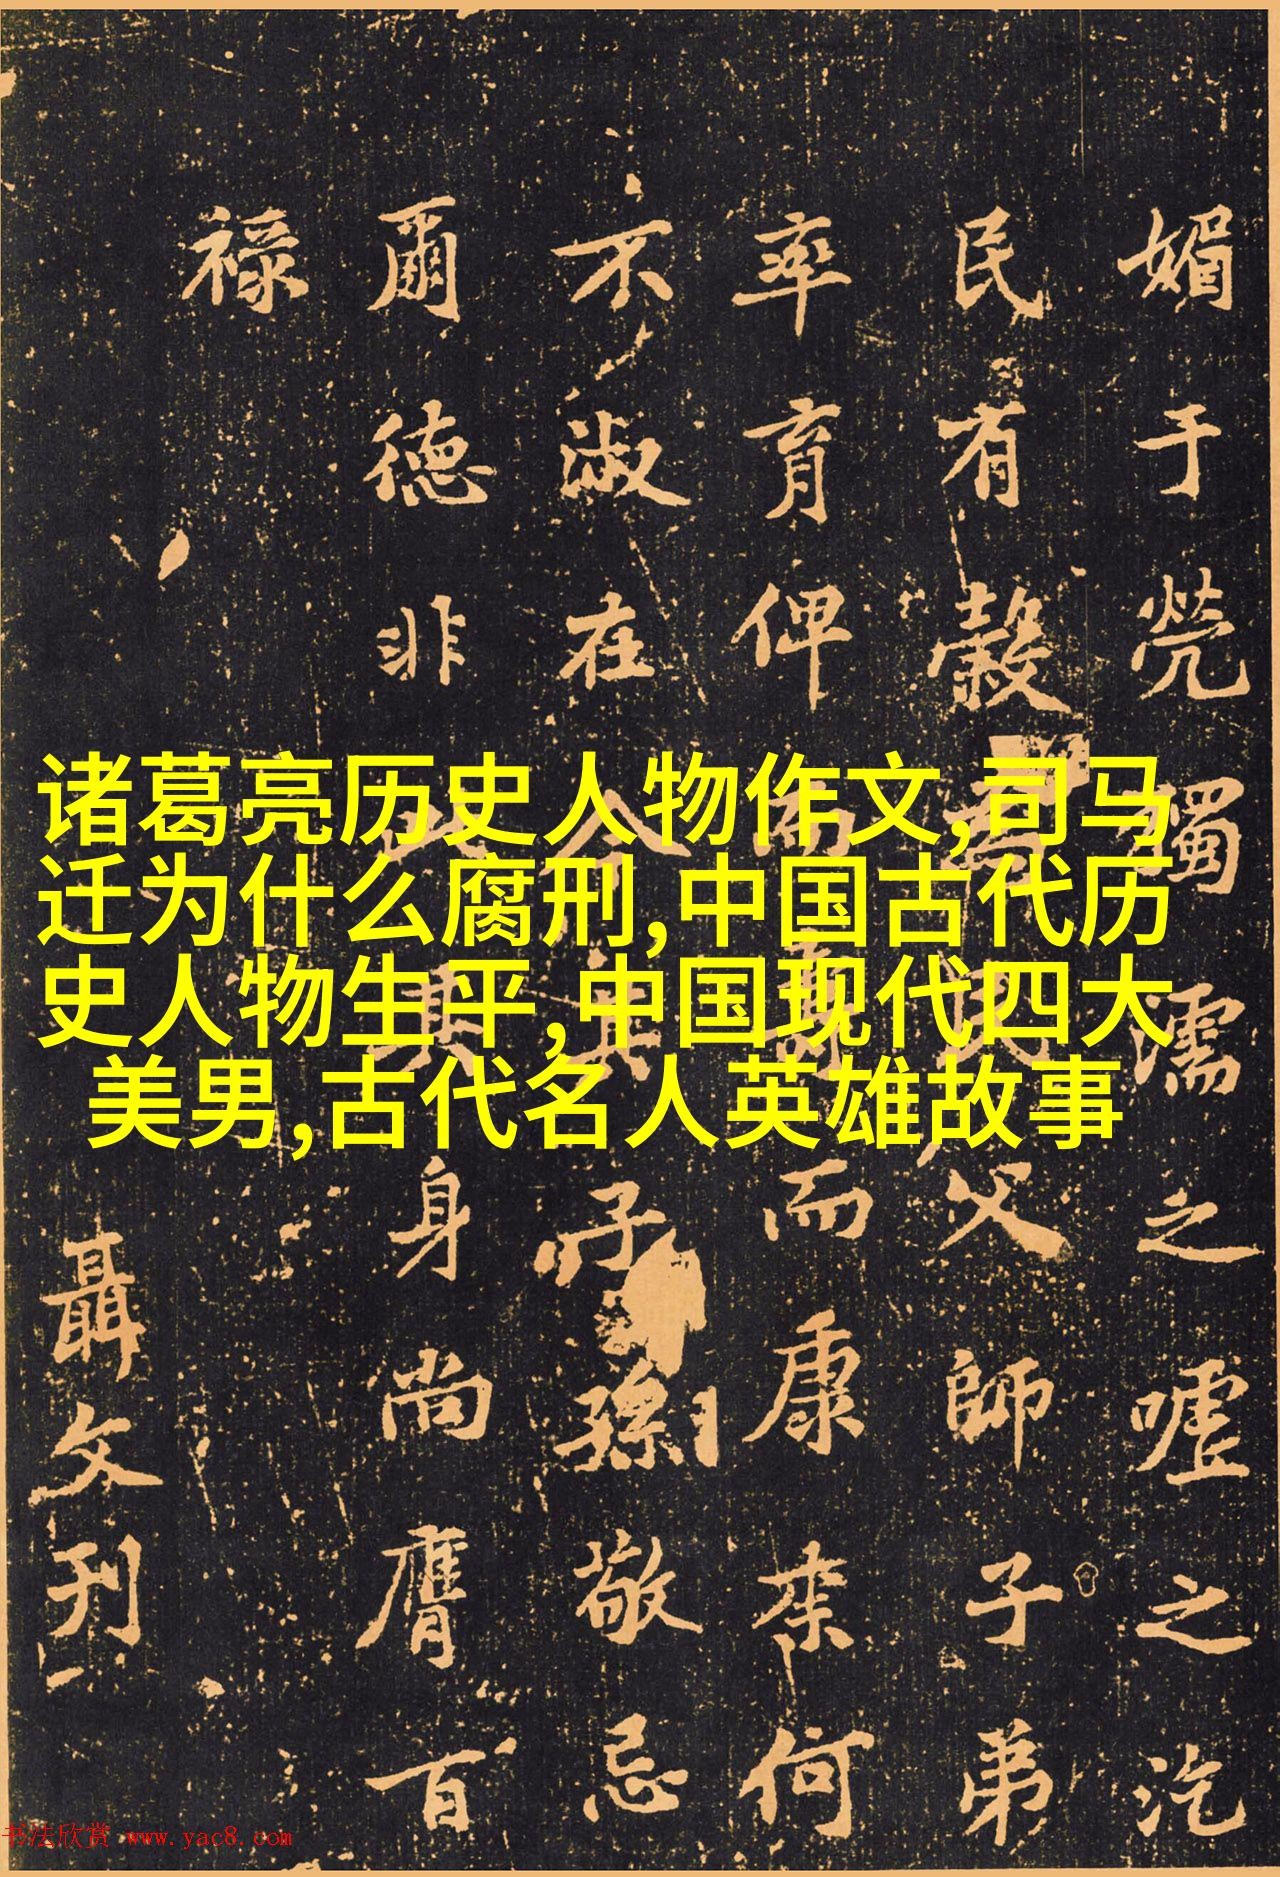 诸葛亮历史人物作文,司马
迁为什么腐刑,中国古代历
史人物生平,中国现代四大
美男,古代名人英雄故事
媚于煢獨濡之嘘之汔
民有穀爲民父師子弟
率育俾而壽而康来何
不淑在其子孫敬忌
爾德非其身尚膺百
祿
聶文刊
书法欣赏 www.yac8.com